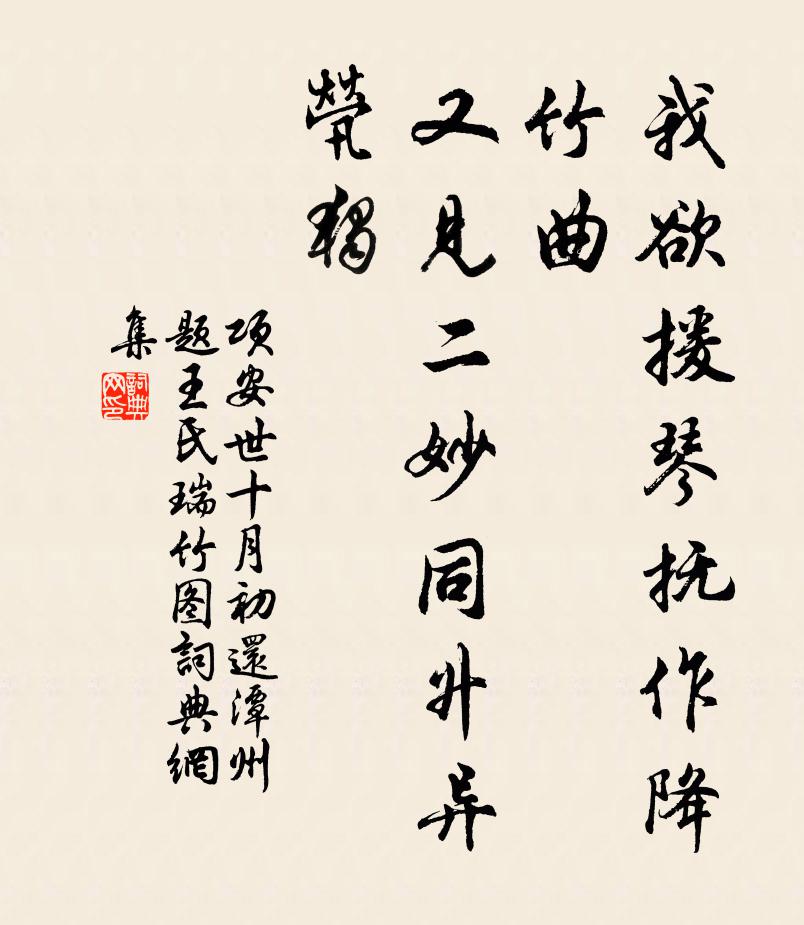 我欲援琴抚作降
竹曲
又见二妙同升异
茕独
项安世十月初還潭州
题王民瑞竹图詞典網
集
詞典
网印